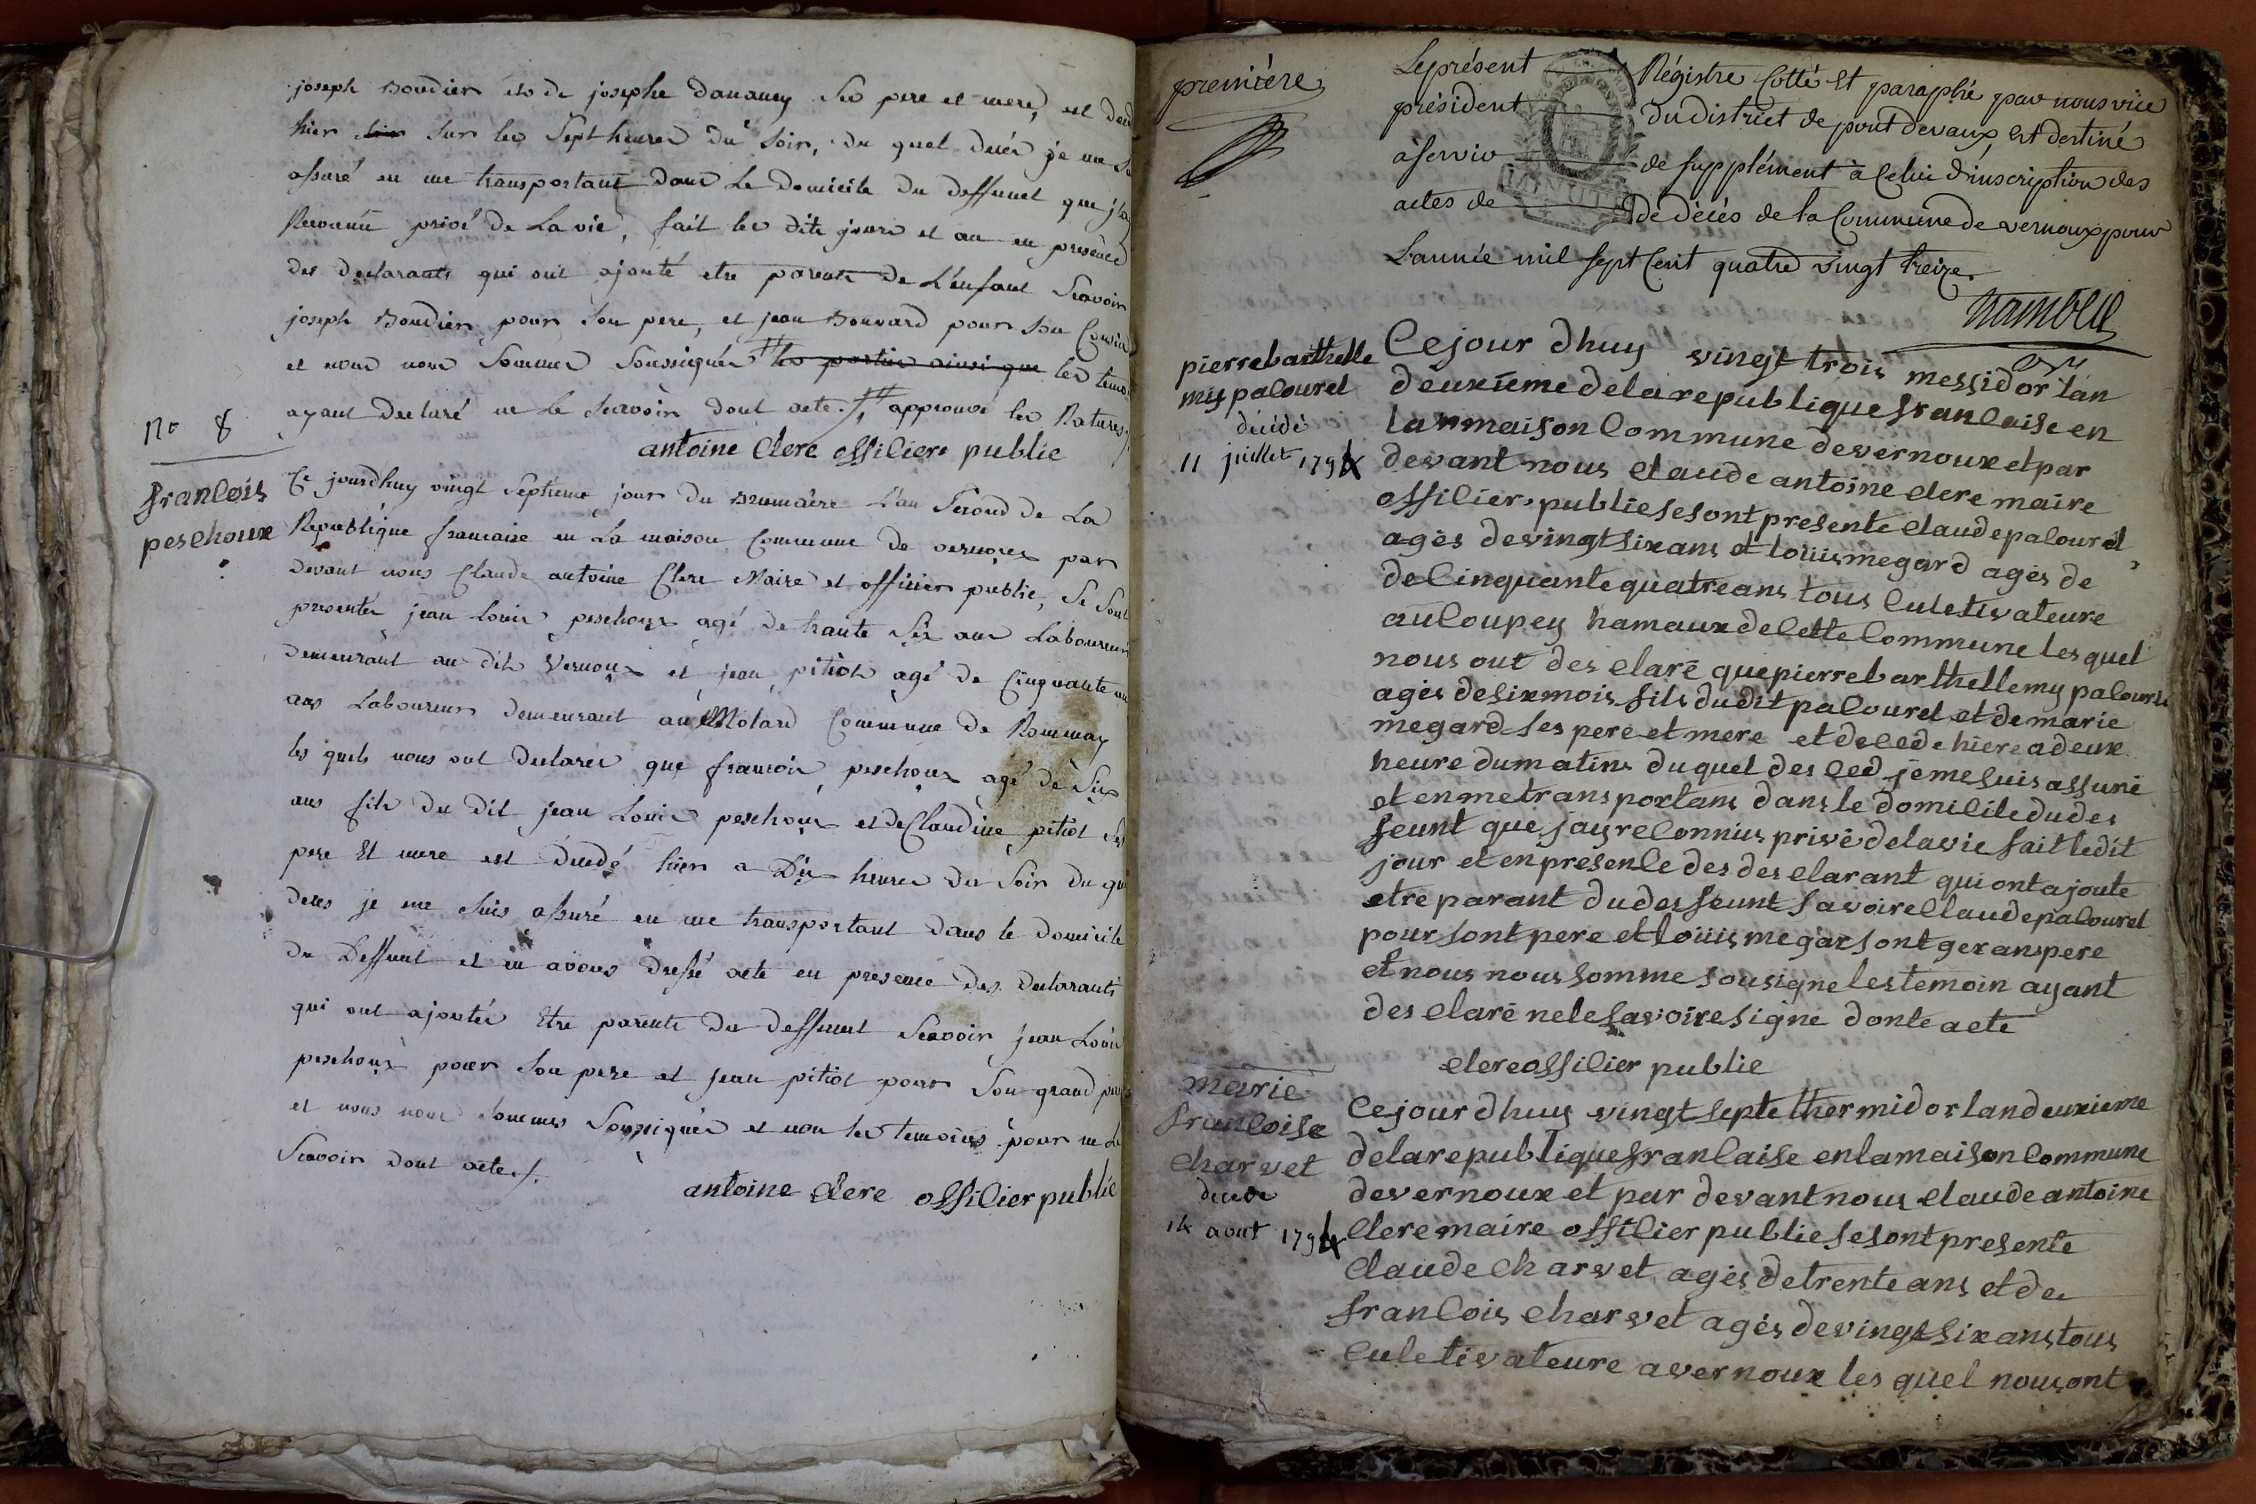 joseph Boudier et de josephe danancy Ses pere et mere, est
hier soir sur les Sept heures du soir, du quel décès je me
assuré en me transportant dans Le domicile du deffunct que j'ay
Reconnu privé de La vie, fait les dits jours et an en presence
des declarants qui ont ajouté etre parents de L'enfant Scavoir
joseph Boudier pour Son pere, et jean Bouvard pour son Cousin
et nous nous Sommes Soussignés les parties ainsi que les
ayant declaré ne le Scavoir dont acte ./. approuvé les Ratures ./.
antoine Clerc offilier publie
N° 8
franlois
peschoux
Ce jourdhuy vingt Septieme jour du Brumaire L'an Second de La
Republique francaise en La maison Commune de vernoux par
devant nous Claude antoine Clerc Maire et officier public, Se Sont
presentés jean Louis peschoux agé de trante Six ans Laboureur
demeurant au dit Vernoux et jean pitiot agé de Cinquante
ans Laboureur demeurant au Molard Commune de Rommay
les quels nous ont declarés que francois peschoux agé de Six
ans fils du dit jean Louis peschoux et de Claudine pitiot Ses
pere Et mere est decedé hier a Dix heures du Soir du
deces je me suis assuré en me transportant dans le domicile
du Deffunt et en avons dressé acte en presence des declarants
qui ont ajoutés Etre parents du deffunt Scavoir jean Louis
peschoux pour Son pere et jean pitiot pour Son grand pere
et nous nous sommes Soussignés et non les temoins pour ne Le
Scavoir dont acte ./.
antoine clerc offilier publie
premiére
Le présent Régistre Cotté Et paraphé par nous vice
président du district de pont devaux, Est destiné
à servir de supplément à Celui d'inscription des
actes de de décés de la Commune de vernoux pour
L'année mil sept Cent quatre vingt treize.
MINUTE
pierre barthelle
my palouret
décédé
11 juillet 1794
Ce jour dhuy vingt trois messidor lan
deuxieme de la republique franlaise en
la maison Commune de vernoux et par
devant nous claude antoine clerc maire
offilier publie se sont presente claude palouret
agés de vingt six ans et louis megard agés de
de linquante quatre ans tous luletivateure
au loupey hamaux de lette Commune les quel
nous ont des claré que pierre barthellemy palouret
agés de six mois fils dudit palouret et de marie
megard ses pere et mere et delede hiere a deux
heure du matins du quel des led je me suis assuré
et en me transportans dans le domilile du des
feunt que jay relonnius privé de la vie fait ledit
jour et en presenle des des clarant qui ont ajoute
etre parant du des feunt savoire Claude palouret
pour sont pere et louis megar sont gerans pere
et nous nous somme sousigne les temoin ayant
des claré ne le savoire signe donte acte
clerc offilier publie
marie
franloise
charvet
decede
14 aout 1794
Ce jour dhuy vingt septe thermidor lan deuxieme
de la republique franlaise en la maison Commune
de vernoux et par devant nous claude antoine
Clerc maire offilier publie se sont presente
Claude charvet agés de trente ans et de
franlois charvet agés de vingt six ans tous
luletivateure a vernoux les quel nous ont